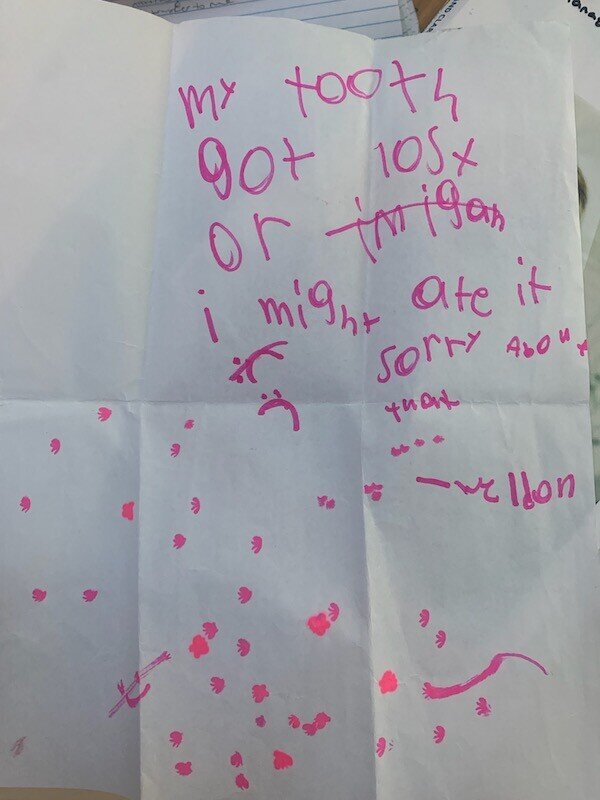 my tooth
got lost
or imigan
i might ate it
sorry About
that
....
—weldon